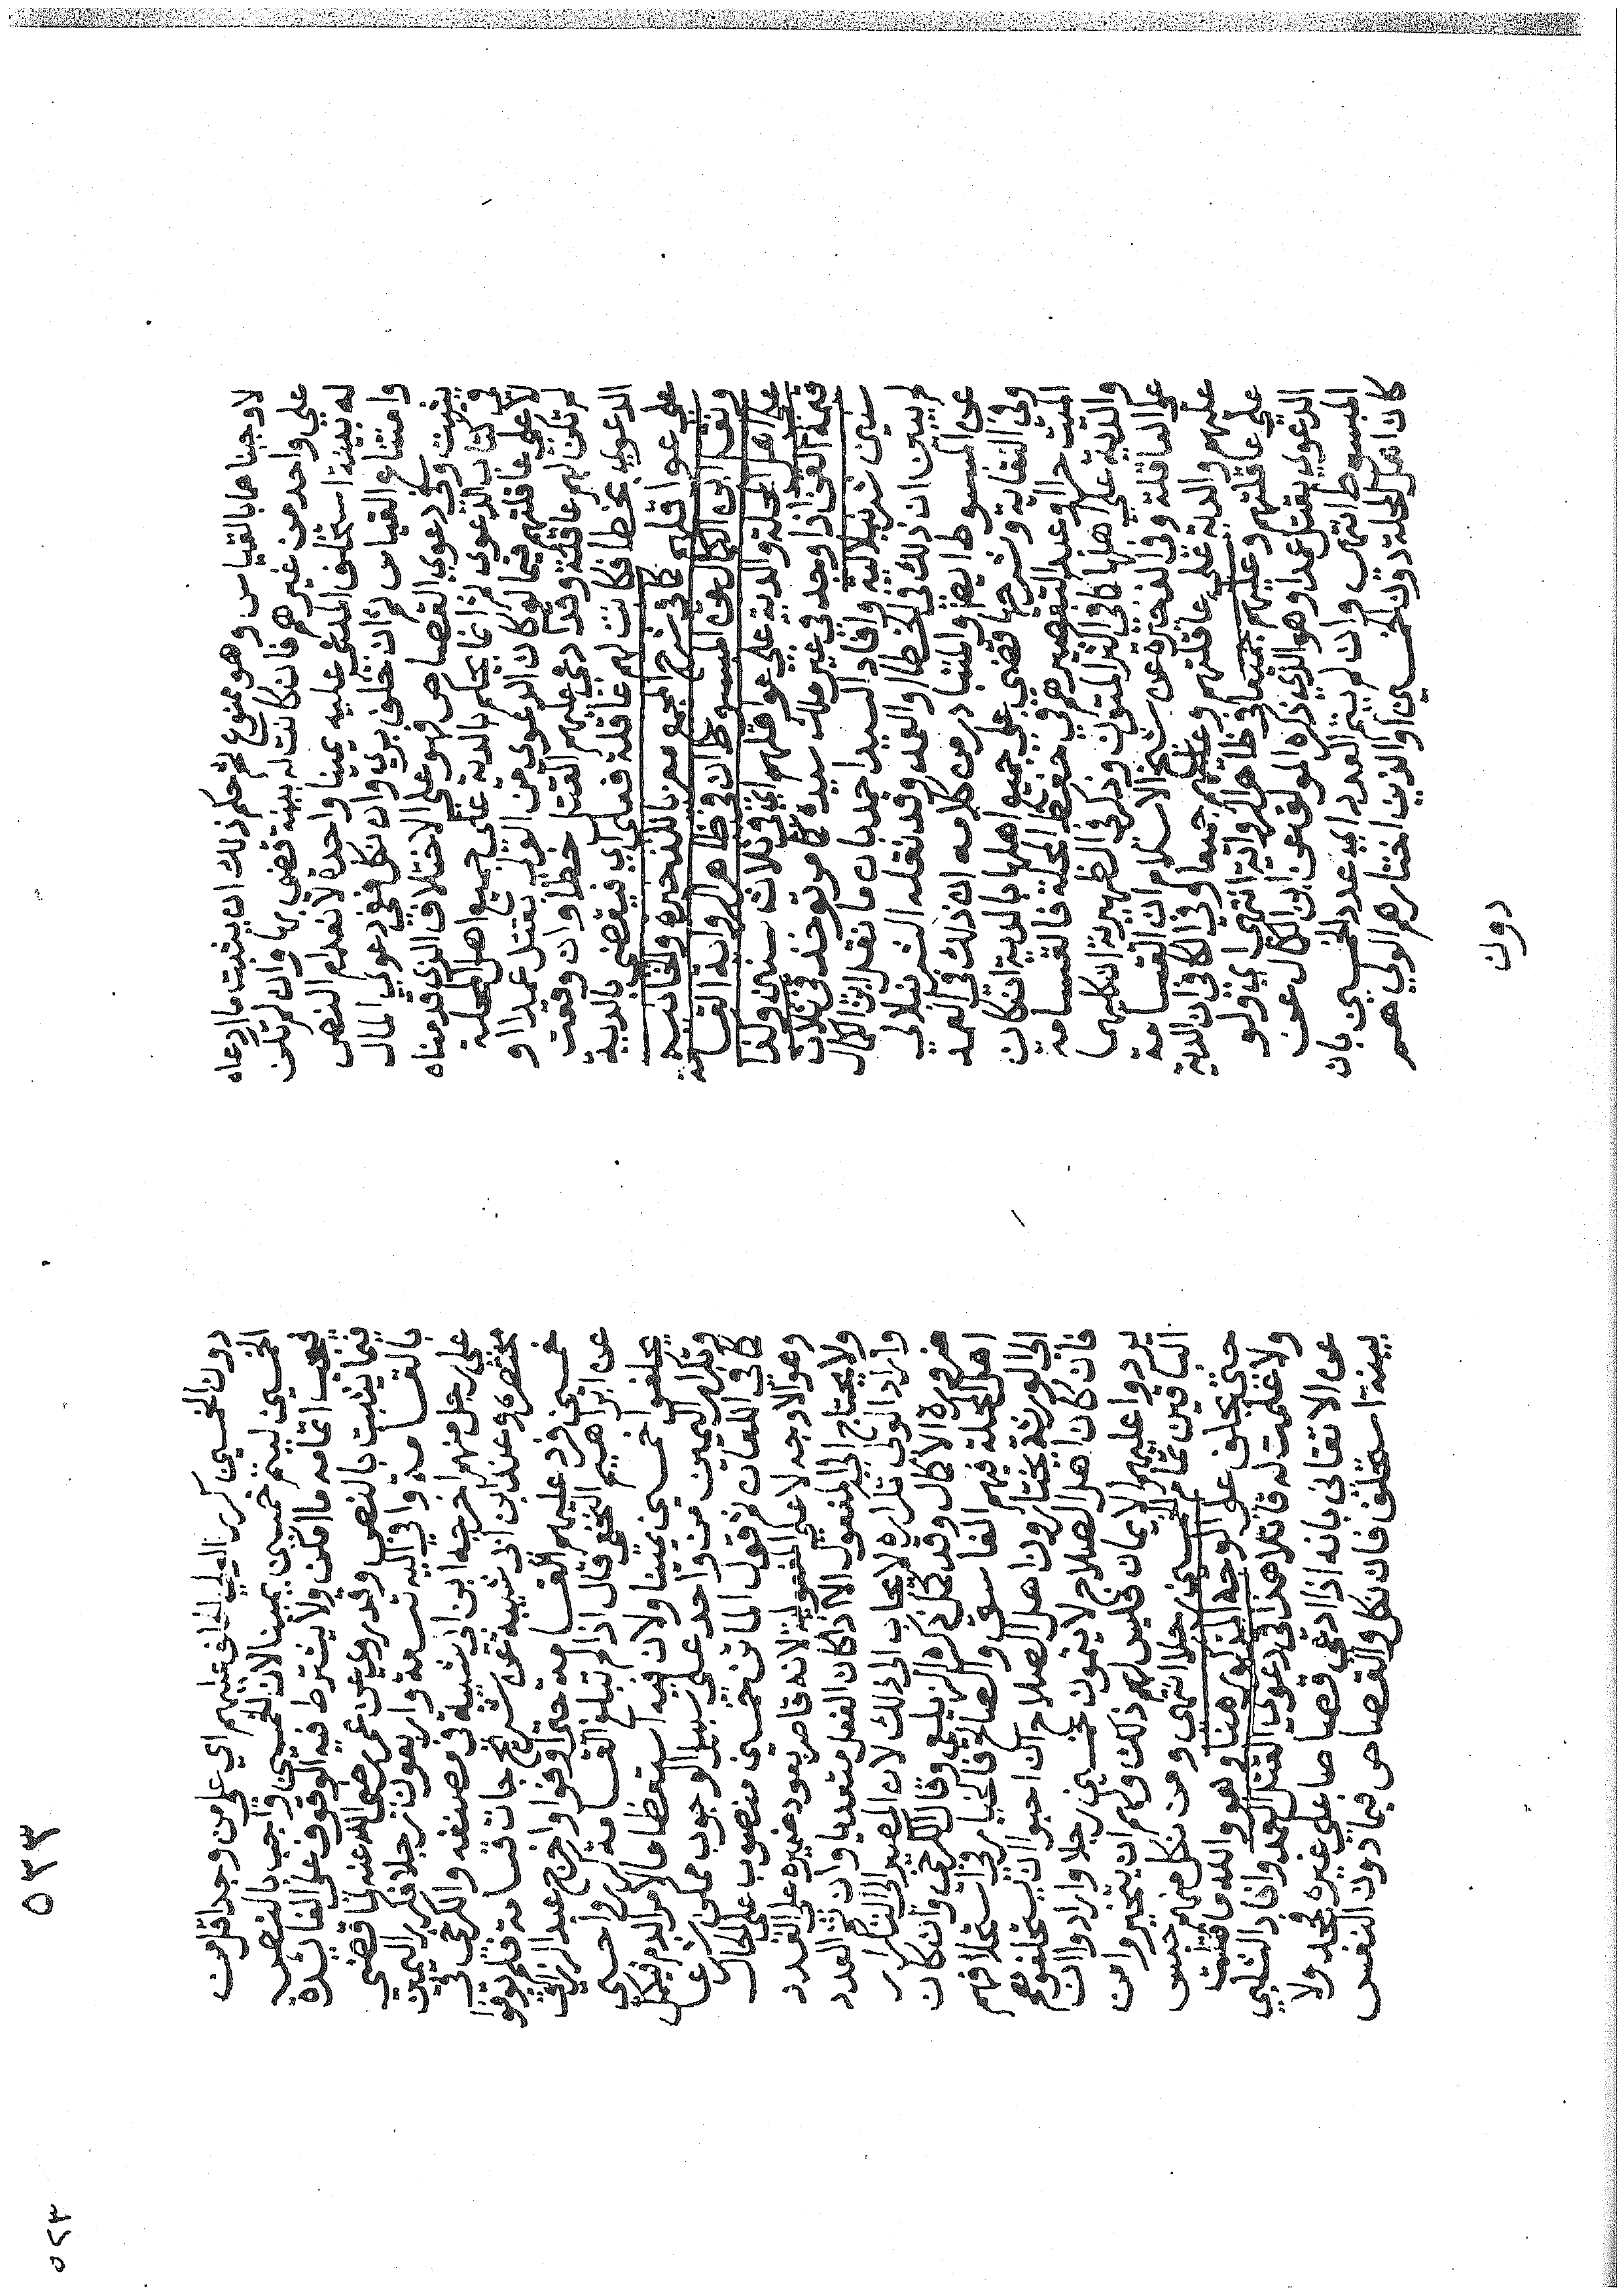 لاوجبناهما بالقياس وهو ممنوع ثم حكم ذلك ان يثبت ما ادعاه
علي واحد من غيرهم فان كانت له بينة قضي بها وان لم تكن
له بينة استحلف المدعي عليه يمينا واحدة لانعدام النص
وامتناع القياس ثم ان حلف بري وان نكل ففي دعوي المال
يثبت وفي دعوي القصاص فهو علي الاختلاف الذي قدمناه
في كتاب الدعوي ثم انما يحكم بالدية علي جميع اهل المحلة
لا علي عاقلتهم فيما لو كان الدعوي من الولي بقتل عمدا و
لم تكن لهم عاقلة وقد ادعي عليهم القتل خطا وان وقعت
الدعوي بخطا فكانت لهم عاقلة فعلي اي فيقضي بالدية
علي عواقلهم كما في شرح المجمع معزيا للذخيرة والخانية
ونقل ابن الكمال عن المبسوط ان في ظاهر الرواية القسامة
علي اهل المحلة والدية علي عواقلهم اي في ثلاث سنين وكذا
قيمة القن اذا وجد في غير ملك سيده كما مر تؤخذ في ثلاث
سنين شرنبلالية وافاد السيد احمد بان ما نقل ابن الكمال
لم يبين ان ذلك في الخطا او العمد وقد نقله الشرنبلالي
عن المبسوط ايضا والمتبادر من كلامه ان ذلك في العمد
وفي النقاية وشرحها قضي علي جميع اهلها بالدية ان كان
الميت حرا وعبدا لتقصيرهم في حفظ المحلة فالقسامة
والدية علي اهلها كما في اكثر المتون وذكر في الظهيرية ان كليهما
علي العاقلة وفي الذخيرة عن شيخ الاسلام ان القسامة
عليهم والدية علي عاقلتهم وعليهم جميعا وفي الكافي ان الدية
علي عاقلتهم وعليهم جميعا في ظاهر الرواية انتهي اي ولو
الدعوي بقتل عمدا وهو الذي ذكره المولف عن ابن الكمال عن
المبسوط انتهي وان لم يتم العدد اي عدد الخمسين بان
كان اهل المحلة دون الخمسين او الذين اختارهم الولي هم
دون
٥٣٣
دون الخمسين كرر الولي الحلف عليهم اي علي من وجد اقل من
الخمسين ليتم خمسين يمينا لان الخمسين واجب بالنص
فيجب اتمامه ما امكن ولا يشترط فيه الوقوف علي الفائدة
فيما يثبت بالنص وقد روي عن عمر رضي الله عنه لما قضي
بالقسامة وافي اليه تسعة واربعون رجلا فكرر اليمين
علي رجل منهم اخرجه ابن ابي شيبة في مصنفه والكرخي في
مختصره وعند ابن ابي شيبة عن شريح جات قسامة فلم يوفوا
خمسين فرد عليهم القسامة حتي اوفوا واخرج عبد الرزاق
عن ابراهيم النخعي قال اذا لم تبلغ القسامة كرروا حتي
يحلفوا خمسين يمينا ولان فيه استعظاما لامر الدم فيكمل
وتكرار اليمين من واحد علي سبيل الوجوب ممكن شرعا
كما في اللعان ثم قول الماتن خمسين منصوب علي الحال
وهو الاوجه لا علي المفعولية لانه قاصر يعود ضميره علي العدد
ولا يحتاج الي المفعول الا اذا كان الفعل متعديا وان تم العدد
واراد الولي تكراره لا يجاب الي ذلك لان المصير الي التكرار
ضرورة الاكمال وقد كمل ذكره الزيلعي وقال الكرخي وان كان
اهل المحلة فيهم الفاسق والصالح فالخيار في استحلافهم
الي الورثة يختارون اهل الصلاح ان احبوا ان يستحلفوهم
فان كان اهل الصلاح لا يتمون خمسين رجلا وارادوا ان
يردوا عليهم الايمان فليس لهم ذلك ولهم ان يتخيروا من
الباقين تمام الخمسين رجلا انتهي ومن نكل منهم حبس
حتي يحلف علي الوجه المذكور هنا وهو والله ما قتلت
ولا علمت له قاتلا هذا في دعوي القتل العمد وافاد الشلبي
عن الاتقاني بانه اذا ادعي قصاصا علي غيره فجحد ولا
بينة استحلف فان نكل والقصاص فيما دون النفس
٥٢٣